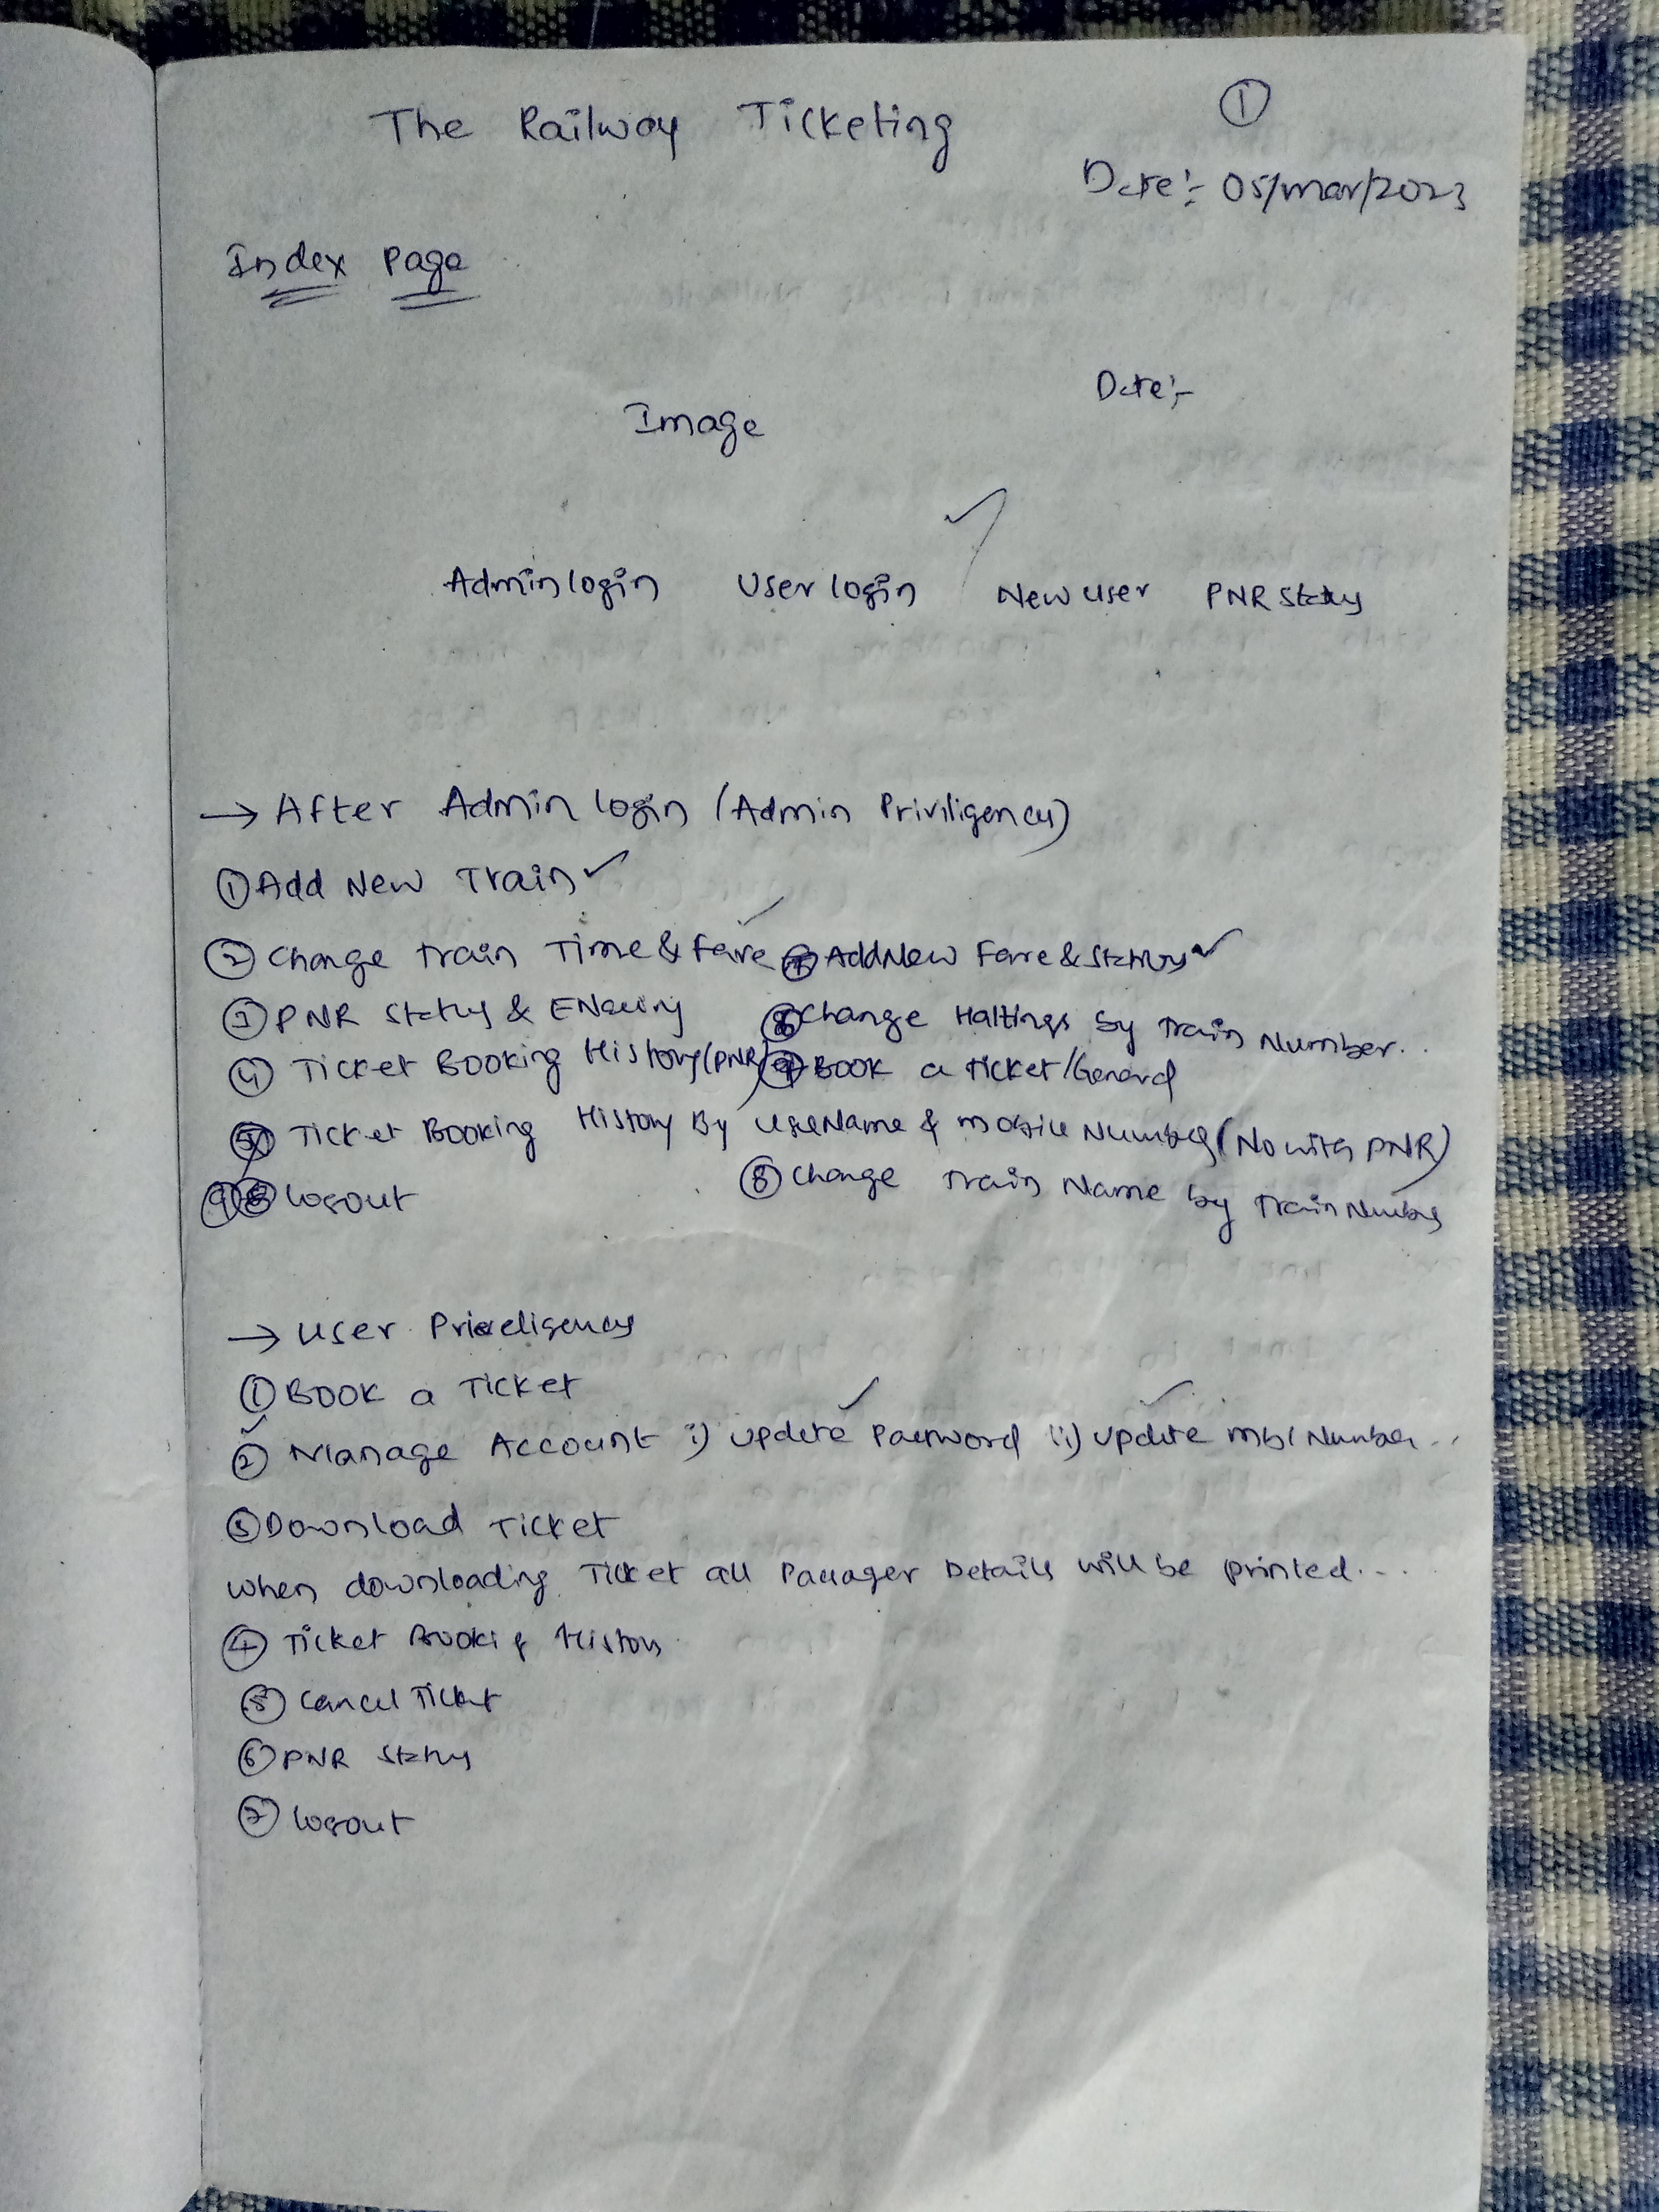 The Railway Ticketing
①
Date:- 05/mar/2023
Index Page
Date:-
Image
Admin login User login New user PNR Status
→ After Admin login (Admin Priviligency)
① Add New Train ✓
② Change train Time & Fare ✓ Add New Fare & Status ✓
③ PNR Status & ENquiry Change Haltings by Train Number..
④ Ticket Booking History (PNR) Book a ticket/General
⑤ Ticket Booking History By UseName & mobile Number (No with PNR)
⑨ logout ⑧ Change Train Name by Train Number
→ User Priveligency
① Book a Ticket
② Manage Account i) update Password ii) update mbl Number...
③ Download Ticket
when downloading Ticket all Passager Details will be printed...
④ Ticket Booking History
⑤ Cancel Ticket
⑥ PNR Status
⑦ logout